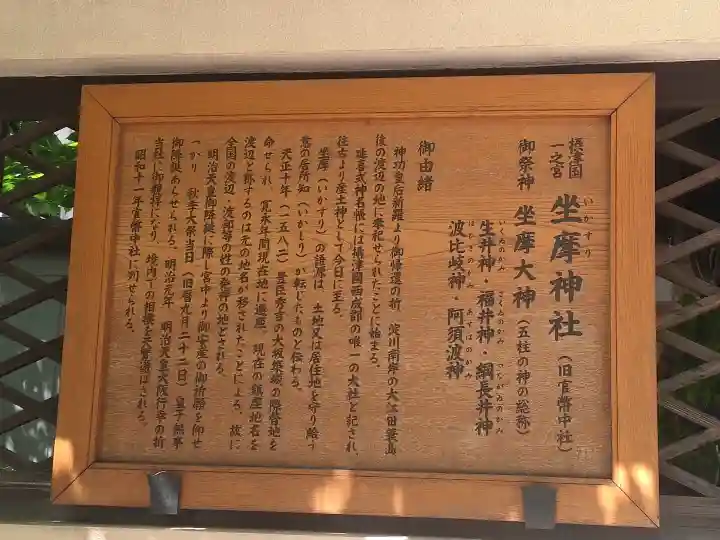 摂津国
一之宮
坐摩神社（旧官幣中社）
いかすり
御祭神 坐摩大神（五柱の神の総称）
生井神・福井神・綱長井神
いくゐのかみ さくゐのかみ つながゐのかみ
波比岐神・阿須波神
はひきのかみ あすはのかみ
御由緒
神功皇后新羅より御帰還の折、淀川南岸の大江田蓑島
後の渡辺の地に奉祀せられたことに始まる。
延喜式神名帳には摂津国西成郡の唯一の大社と記され、
往古より産土神として今日に至る。
坐摩（いかすり）の語源は、土地又は居住地を守り給う
意の居所知（いかしり）が転じたものと伝わる。
天正十年（一五八二）豊臣秀吉の大坂築城の際替地を
命ぜられ、寛永年間現在地に遷座。現在の鎮座地名を
渡辺と称するのは元の地名が移されたことによる。故に
全国の渡辺・渡部等の姓の発祥の地とされる。
明治天皇御降誕に際し宮中より御安産の御祈願を仰せ
つかり、秋季大祭当日（旧暦九月二十二日）皇子無事
御降誕あらせられる。明治元年、明治天皇大阪行幸の折
当社に御親拝になり、境内での相撲を天覧遊ばされる。
昭和十一年官幣中社に列せられる。